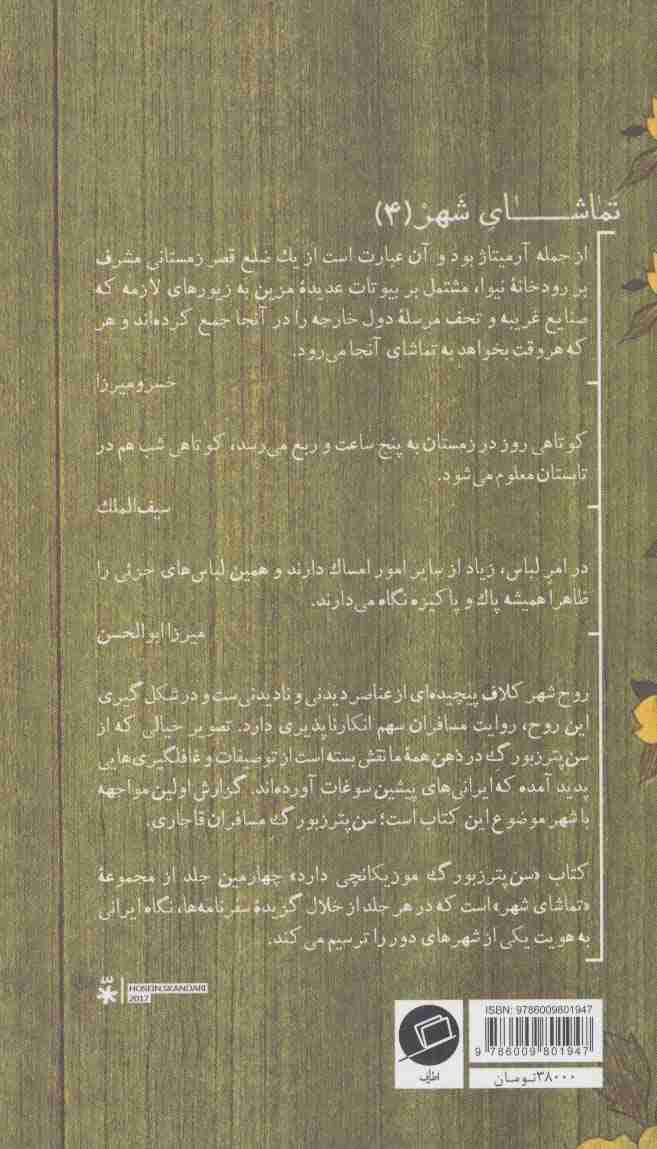 تماشای شهر (۴)
از جمله آرمیتاژ بود و آن عبارت است از یك ضلع قصر زمستانی مشرف
بر رودخانهٔ نیوا، مشتمل بر بیوتات عدیدهٔ مزین به زیورهای لازمه که
صنایع غریبه و تحف مرسلهٔ دول خارجه را در آنجا جمع کرده‌اند و هر
که هر وقت بخواهد به تماشای آنجا می‌رود.
خسرو میرزا
کوتاهی روز در زمستان به پنج ساعت و ربع می‌رسد، کوتاهی شب هم در
تابستان معلوم می‌شود.
سیف‌الملك
در امر لباس، زیاد از سایر امور امساك دارند و همین لباس‌های جزئی را
ظاهراً همیشه پاك و پاکیزه نگاه می‌دارند.
میرزا ابوالحسن
روح شهر کلاف پیچیده‌ای از عناصر دیدنی و نادیدنی‌ست و در شکل‌گیری
این روح، روایت مسافران سهم انکارناپذیری دارد. تصویر خیالی که از
سن‌پترزبورگ در ذهن همهٔ ما نقش بسته است از توصیفات و غافلگیری‌هایی
پدید آمده که ایرانی‌های پیشین سوغات آورده‌اند. گزارش اولین مواجهه
با شهر موضوع این کتاب است؛ سن‌پترزبورگ مسافران قاجاری.
کتاب «سن‌پترزبورگ موزیکانچی دارد» چهارمین جلد از مجموعهٔ
«تماشای شهر» است که در هر جلد از خلال گزیدهٔ سفرنامه‌ها، نگاه ایرانی
به هویت یکی از شهرهای دور را ترسیم می‌کند.
HOSEIN.SKANDARI
2017
ISBN: 9786009801947
9 786009 801947
۳۸۰۰۰ تومان
اطراف